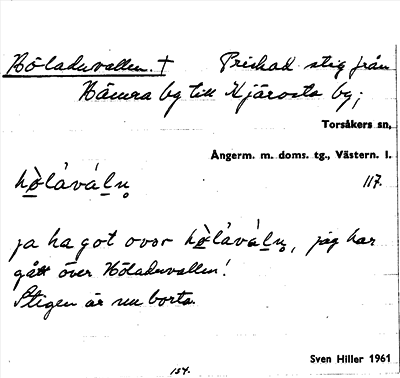 Höladuvallen. † Prickad stig från
Hämra by till Kjärosta by;
Torsåkers sn,
Ångerm. m. doms. tg., Västern. l.
hö̀làválṇ 117.
ja ha got over hö̀làválṇ, jag har
gått över Höladuvallen!
Stigen är nu borta.
Sven Hiller 1961
154.